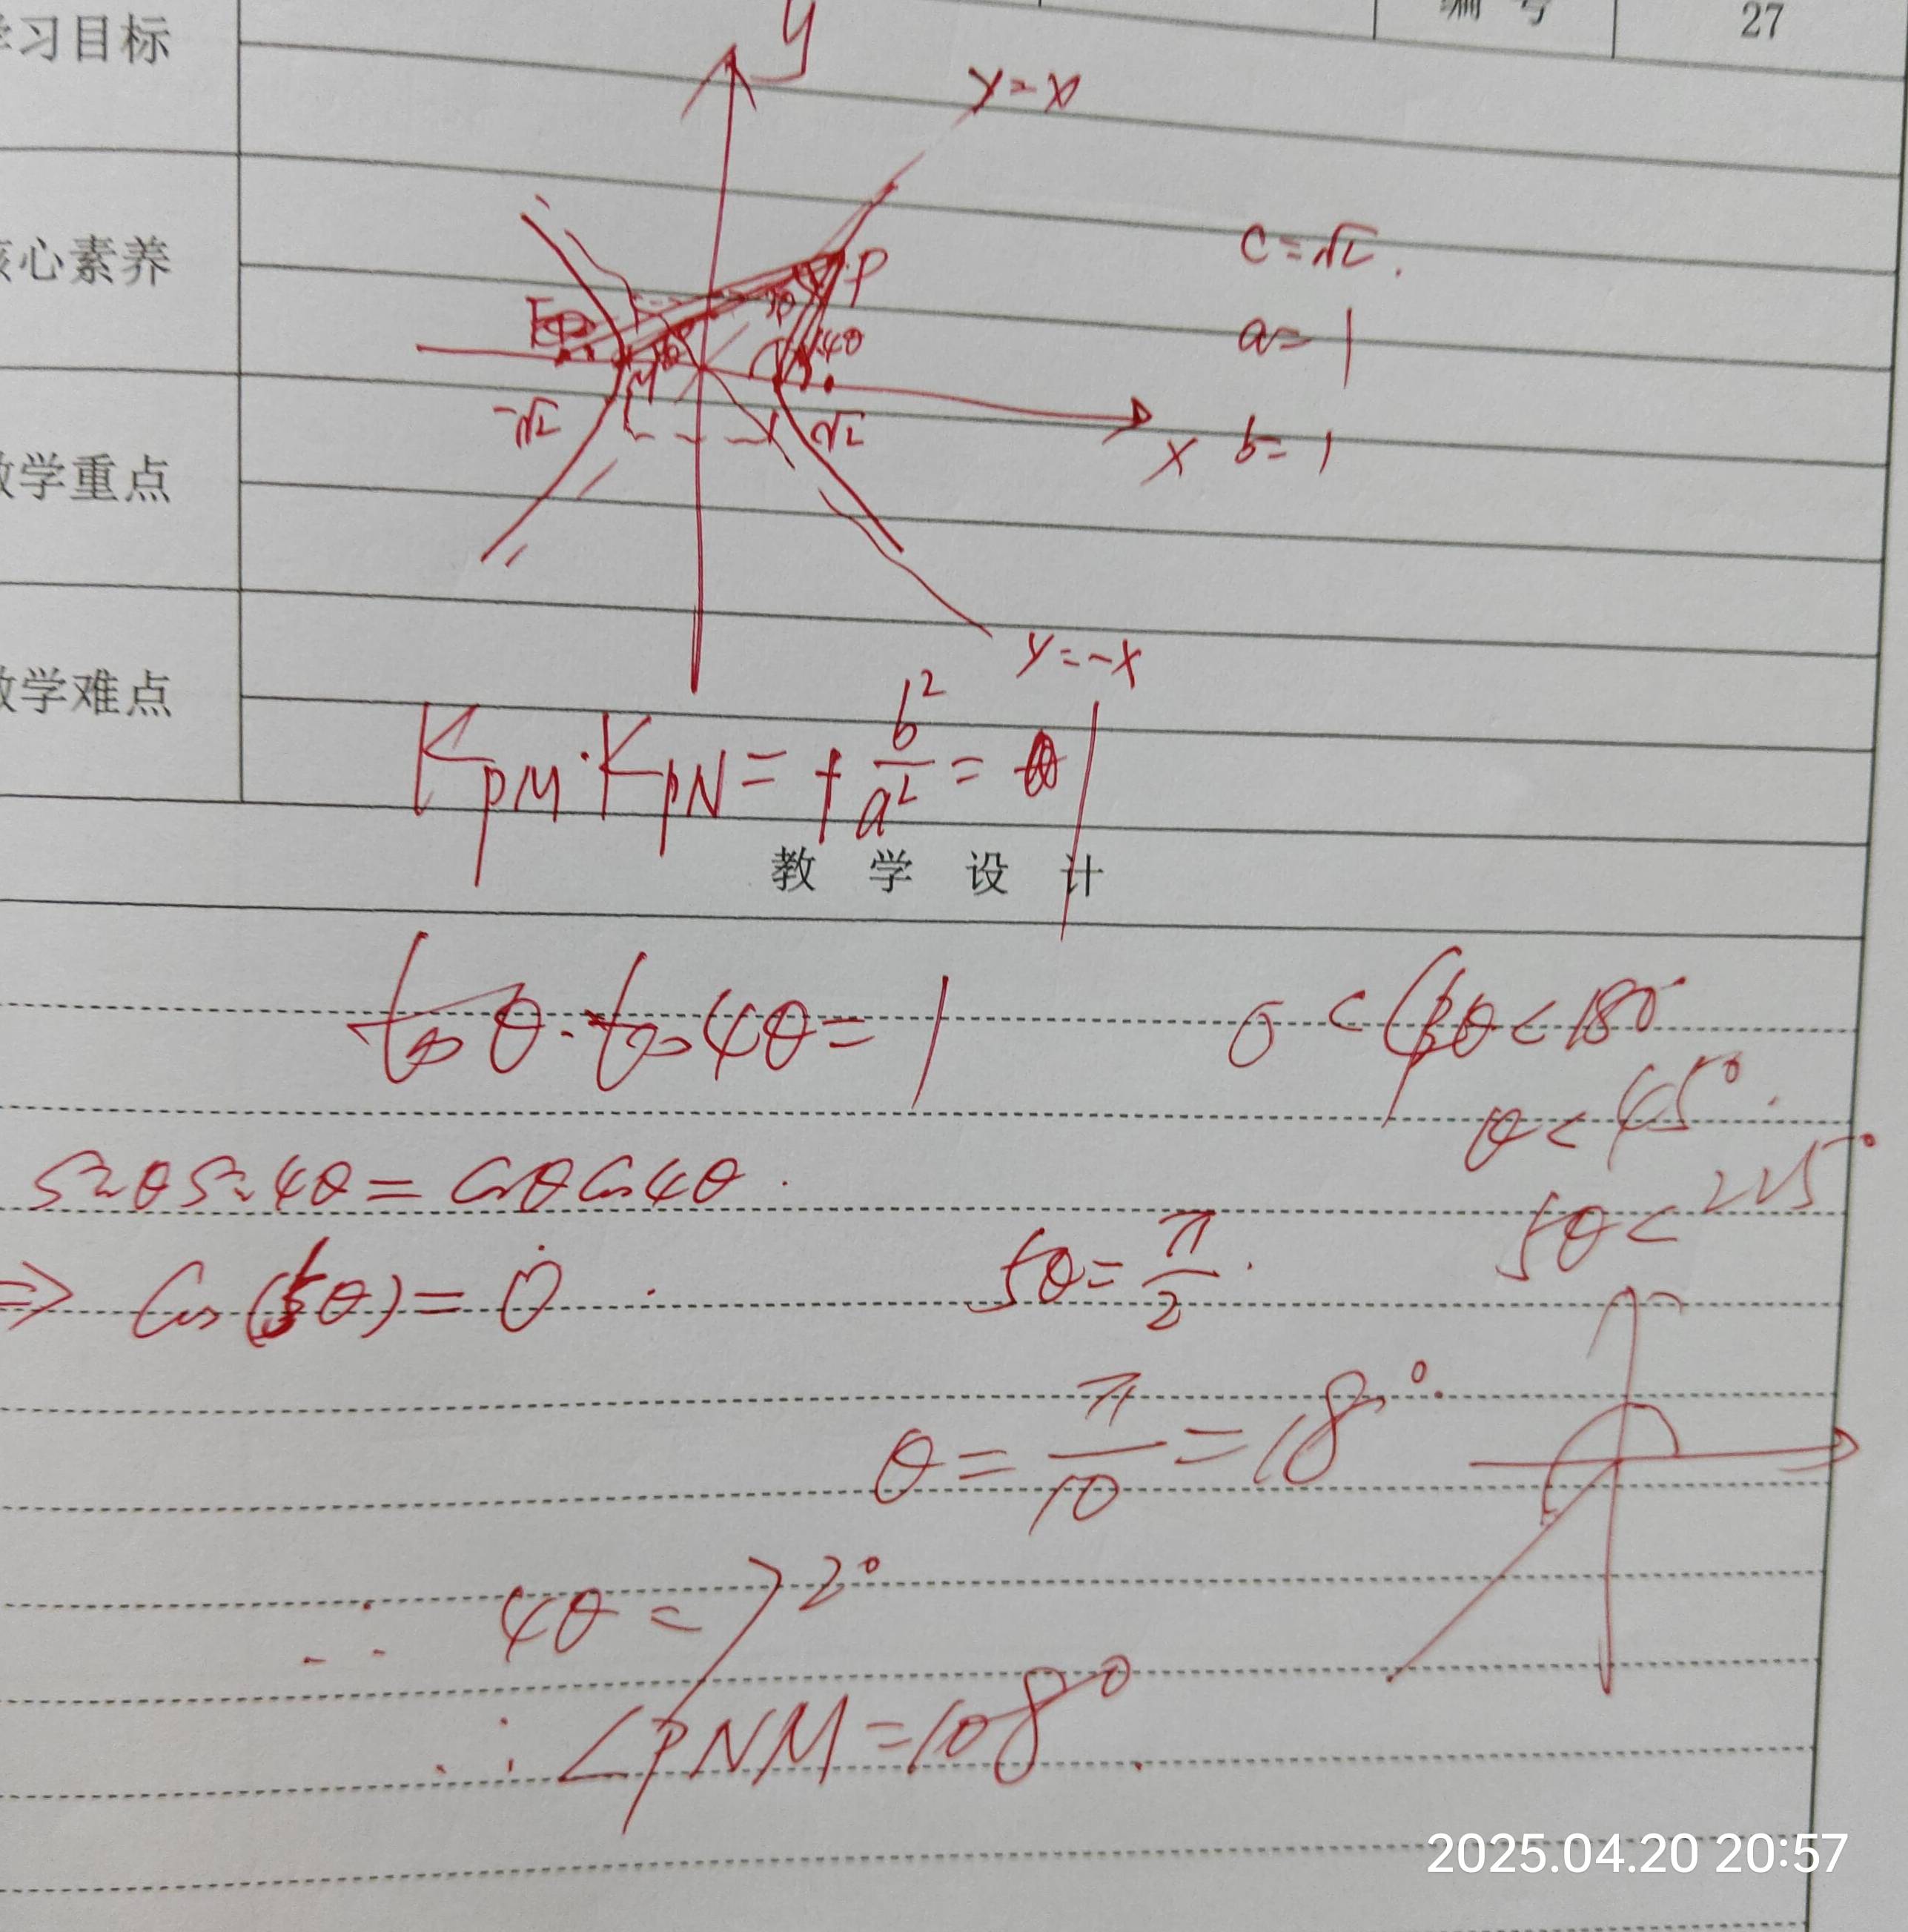 学习目标
编 号
27
核心素养
教学重点
教学难点
y
y=x
P
4θ
M
-√2
√2
x
y=-x
c=√2.
a=1
b=1
K_PM·K_PN=+b²/a²=1
教 学 设 计
tanθ·tan4θ=1
0<θ<180
θ<45°.
sinθsin4θ=cosθcos4θ.
5θ<225°
⇒ cos(5θ)=0.
5θ=π/2.
θ=π/10=18°.
∴ 4θ=72°
∴ ∠PNM=108°.
2025.04.20 20:57